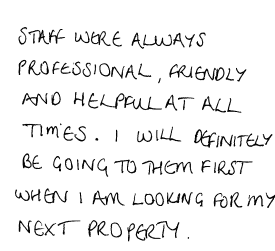 STAFF WERE ALWAYS
PROFESSIONAL, FRIENDLY
AND HELPFUL AT ALL
TIMES. I WILL DEFINITELY
BE GOING TO THEM FIRST
WHEN I AM LOOKING FOR MY
NEXT PROPERTY.